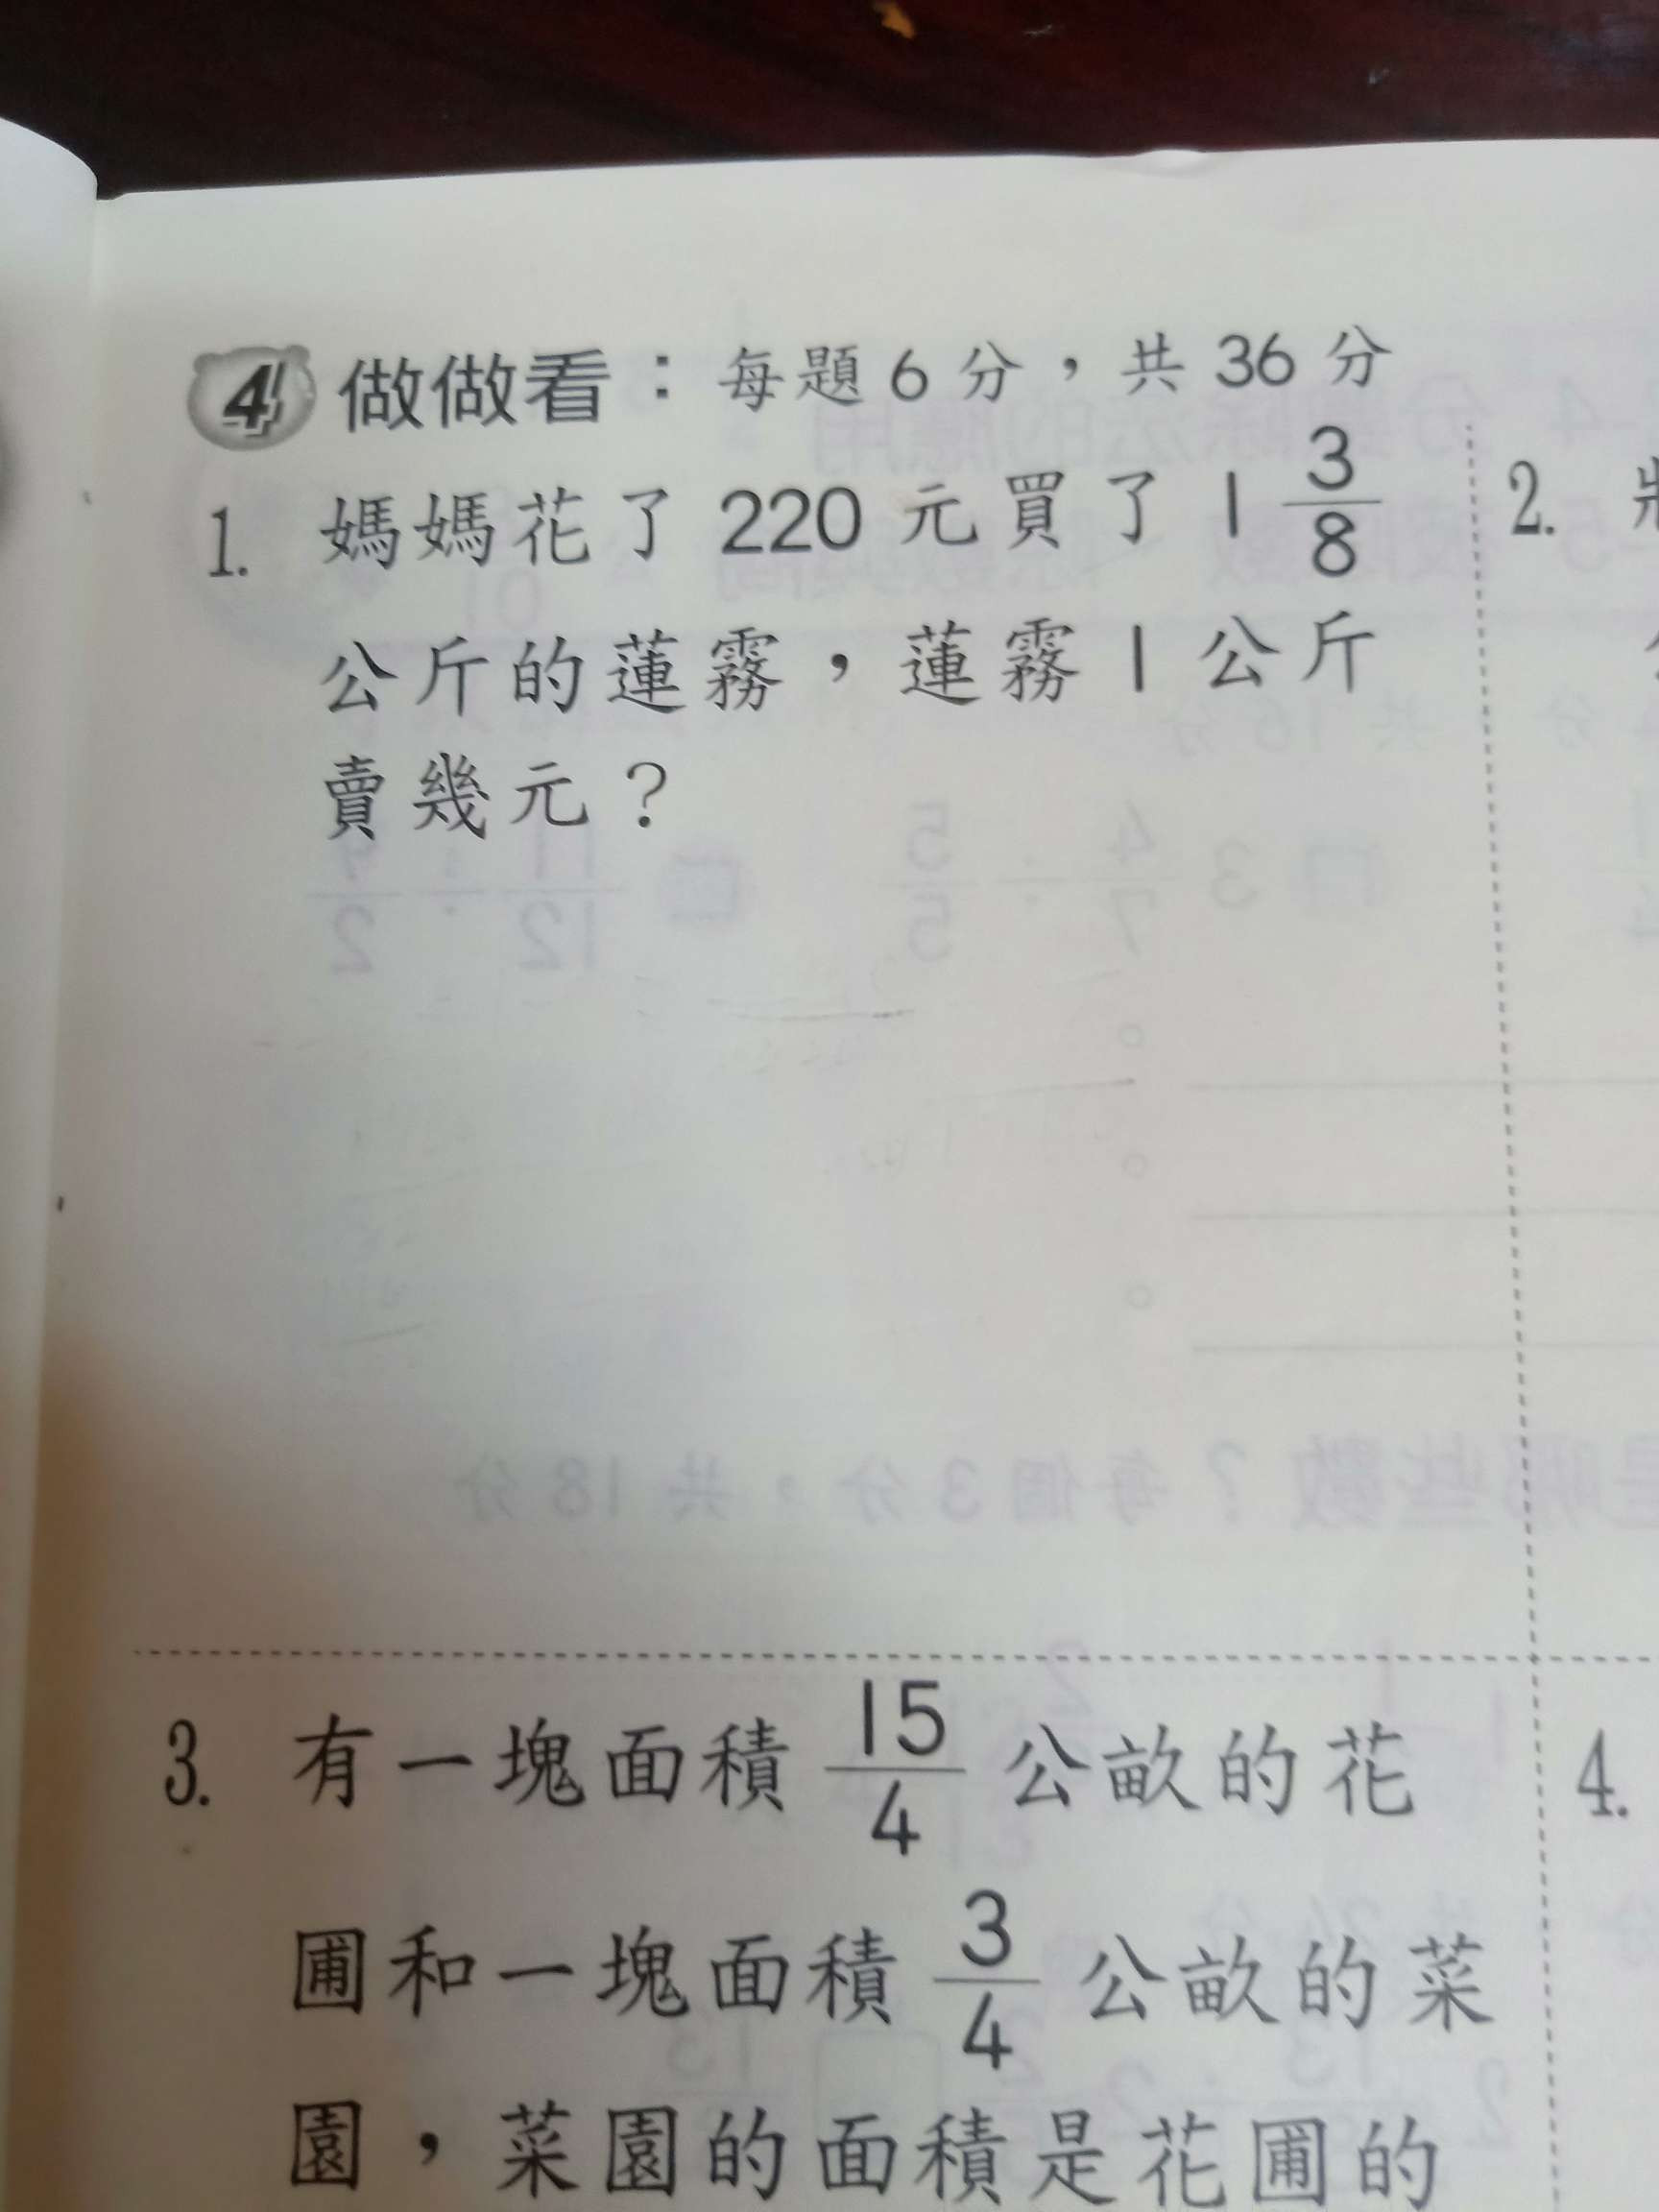 4 做做看：每題6分，共36分
1. 媽媽花了220元買了1 3/8
公斤的蓮霧，蓮霧1公斤
賣幾元？
2.
3. 有一塊面積 15/4 公畝的花
圃和一塊面積 3/4 公畝的菜
園，菜園的面積是花圃的
4.